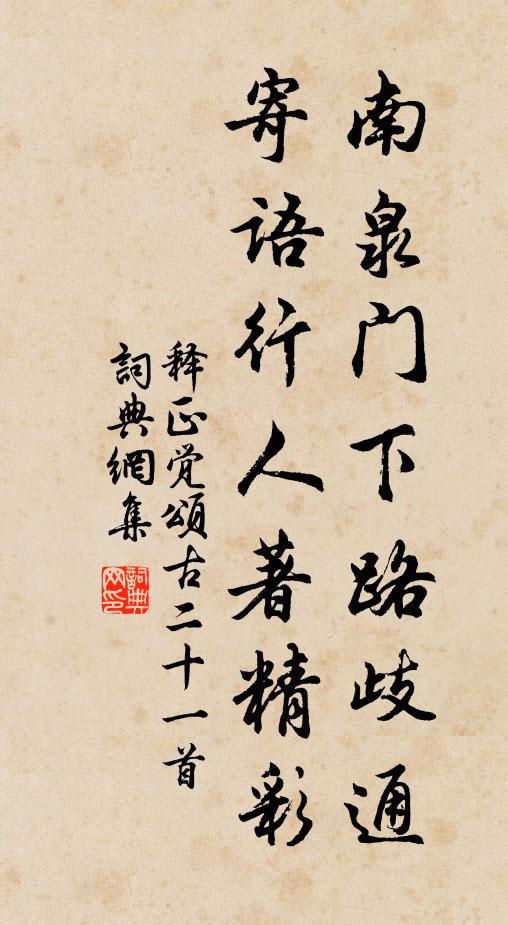 南泉門下路歧通
寄語行人著精彩
释正覚頌古二十一首
詞典網集
詞典
网印